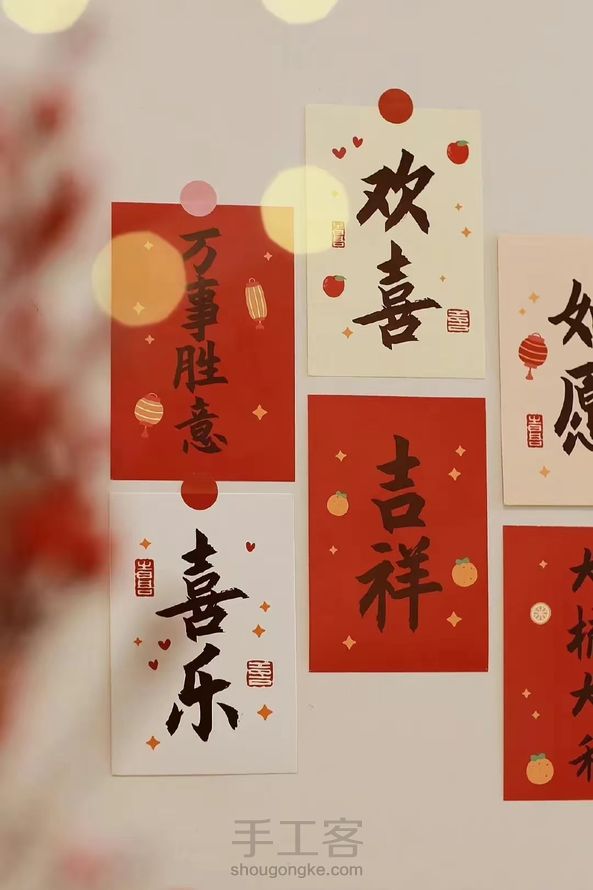 万事胜意
欢喜
如愿
吉祥
喜乐
手工客
shougongke.com